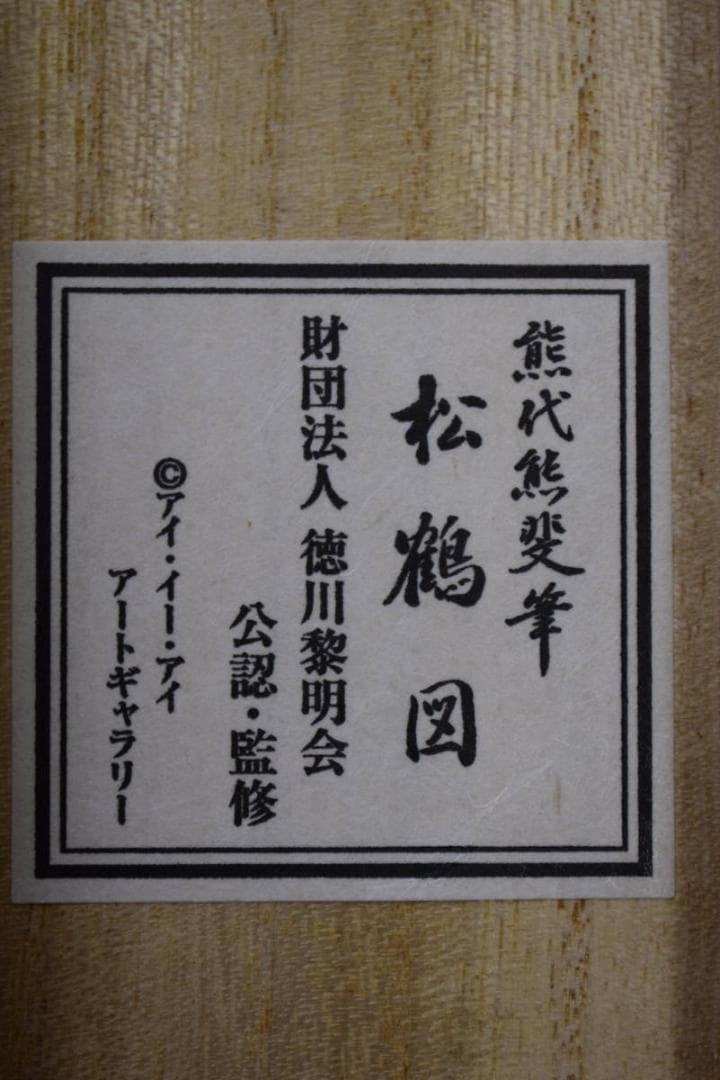 熊代熊斐筆
松鶴図
財団法人 徳川黎明会
公認・監修
©アイ・イー・アイ
アートギャラリー